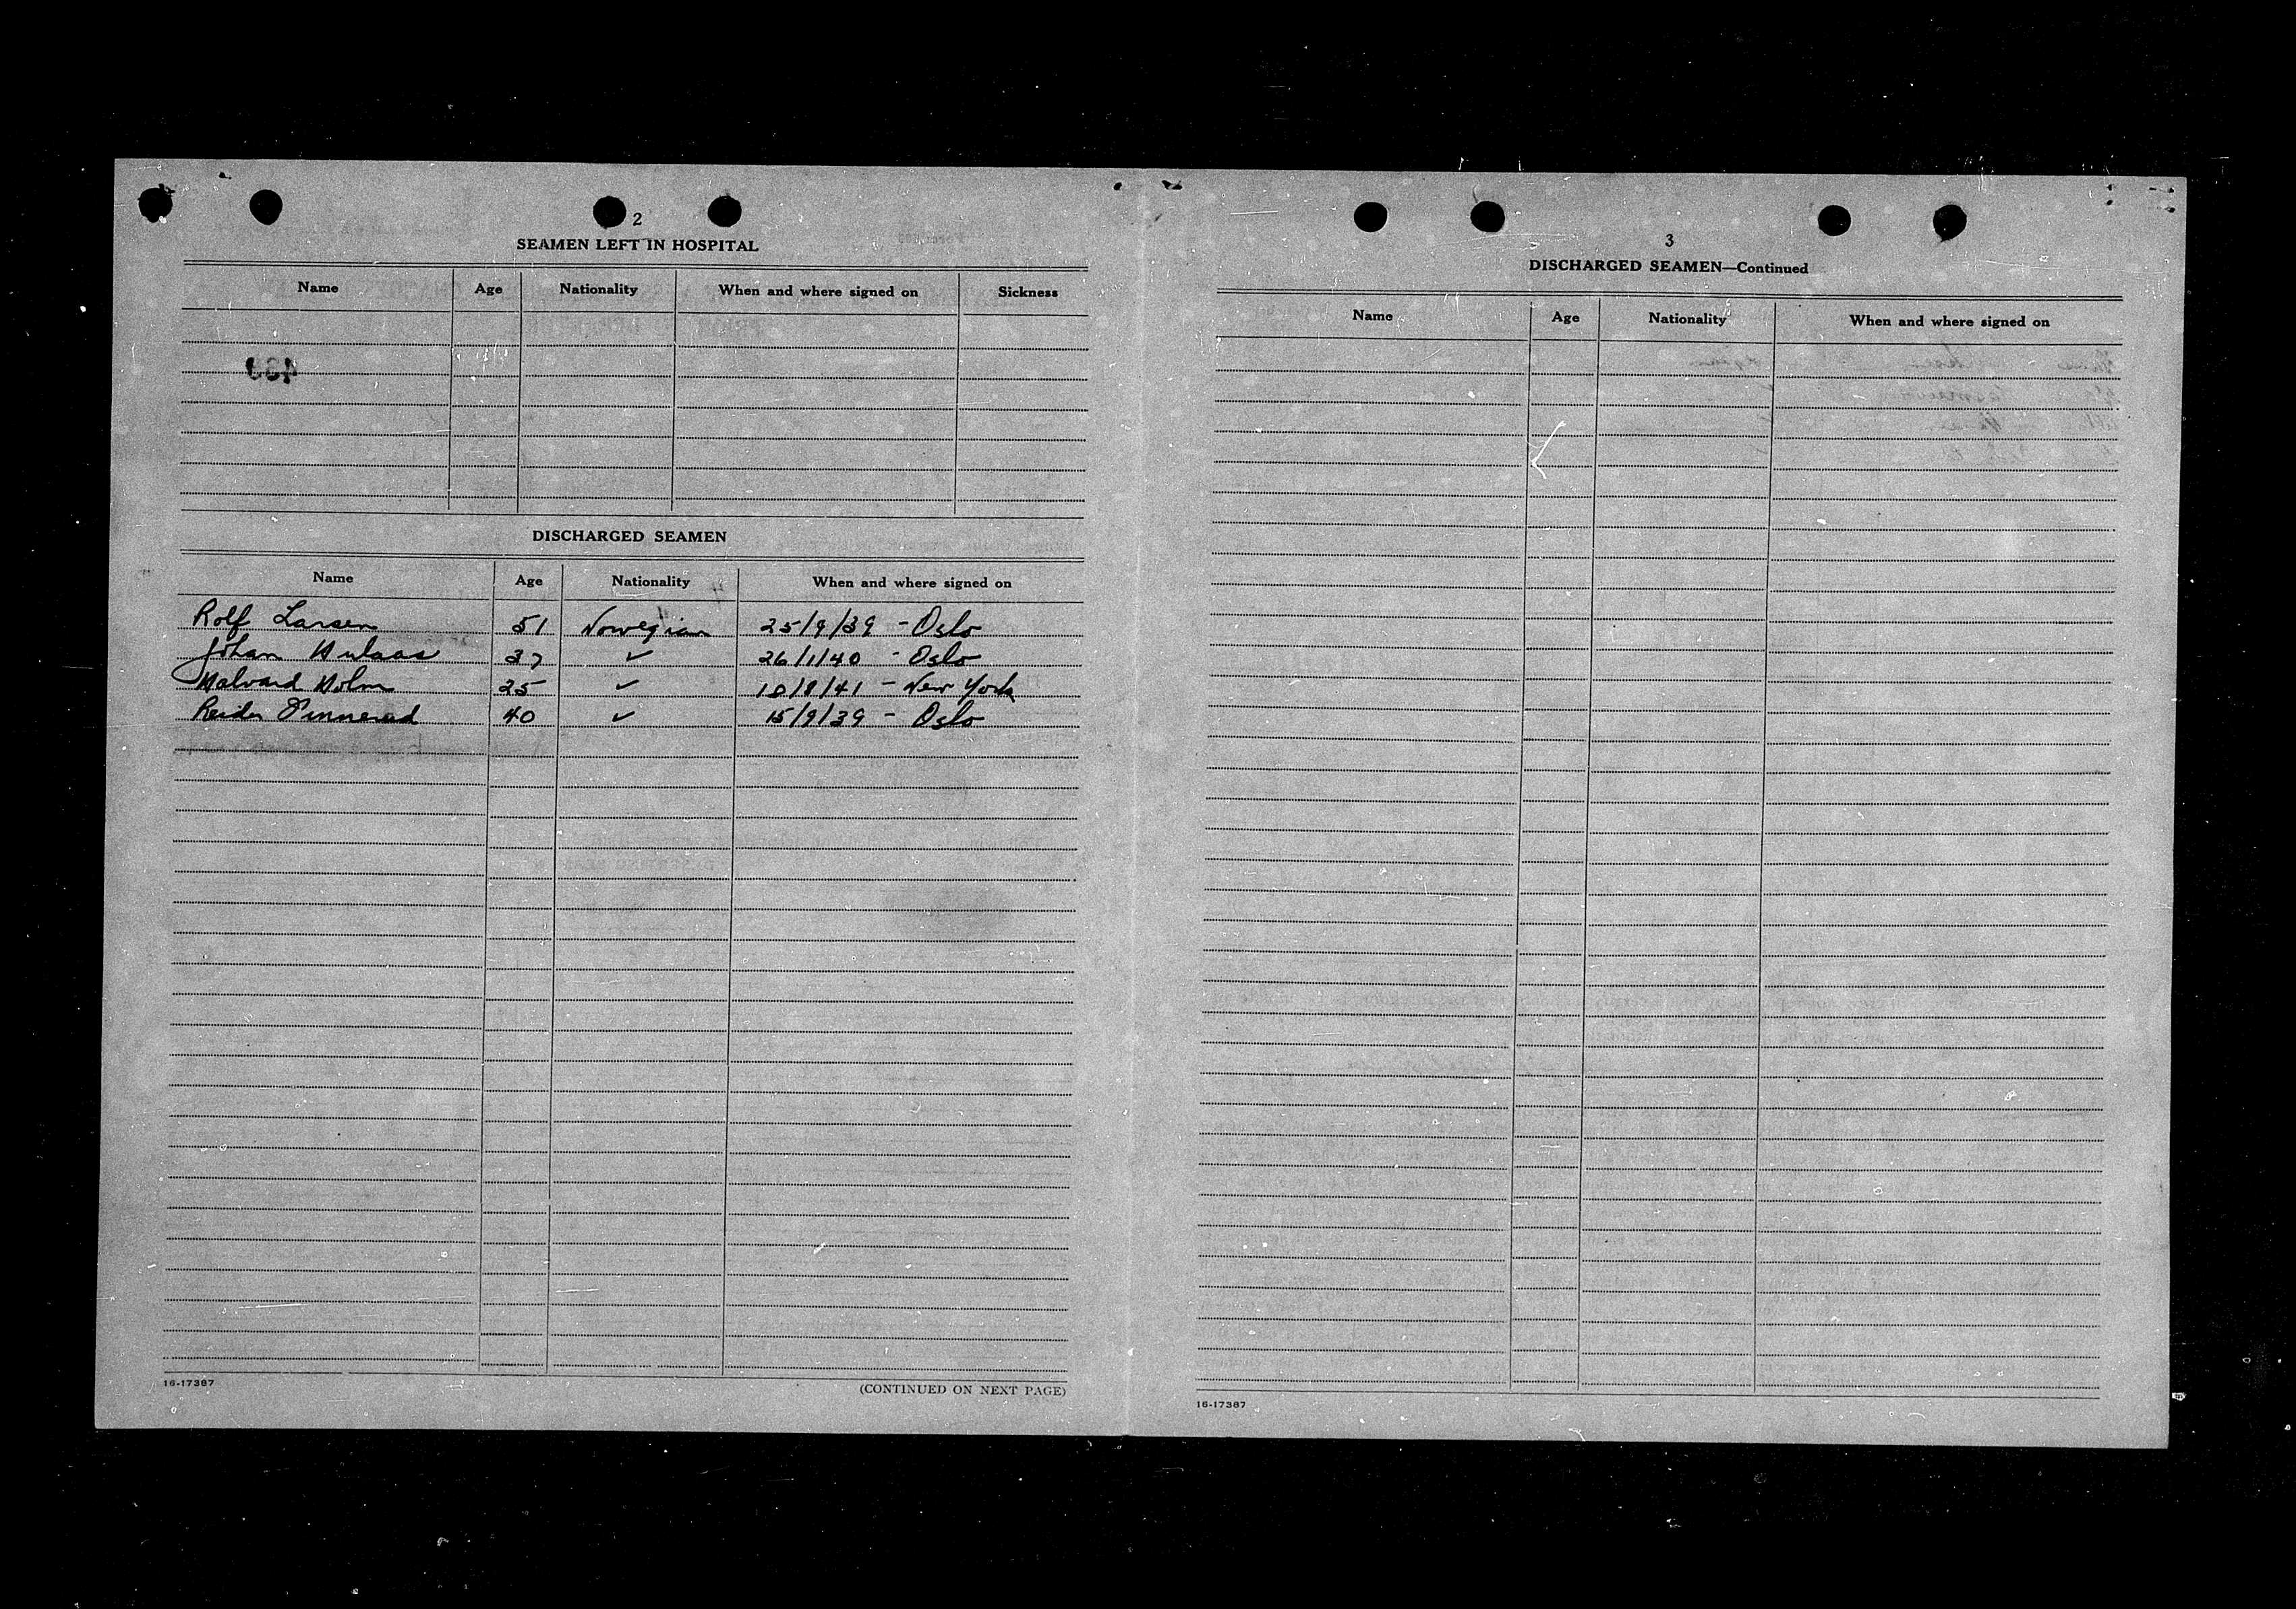 2
SEAMEN LEFT IN HOSPITAL
Name Age Nationality When and where signed on Sickness
DISCHARGED SEAMEN
Name Age Nationality When and where signed on
Rolf Larsen 51 Norwegian 25/9/39 - Oslo
Johan 37 ✓ 26/1/40 - Oslo
Halvard Holm 25 ✓ 18/8/41 - New York
Reidar 40 ✓ 15/9/39 - Oslo
16-17387
(CONTINUED ON NEXT PAGE)
3
DISCHARGED SEAMEN—Continued
Name Age Nationality When and where signed on
16-17387